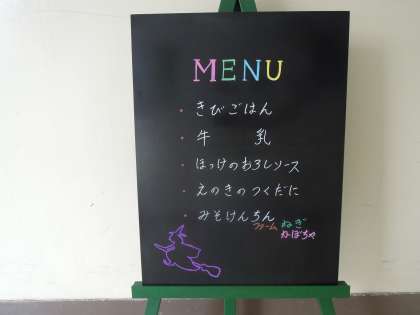 MENU
・きびごはん
・牛 乳
・ほっけのおろしソース
・えのきのつくだに
・みそけんちん
ファーム ねぎ
かぼちゃ